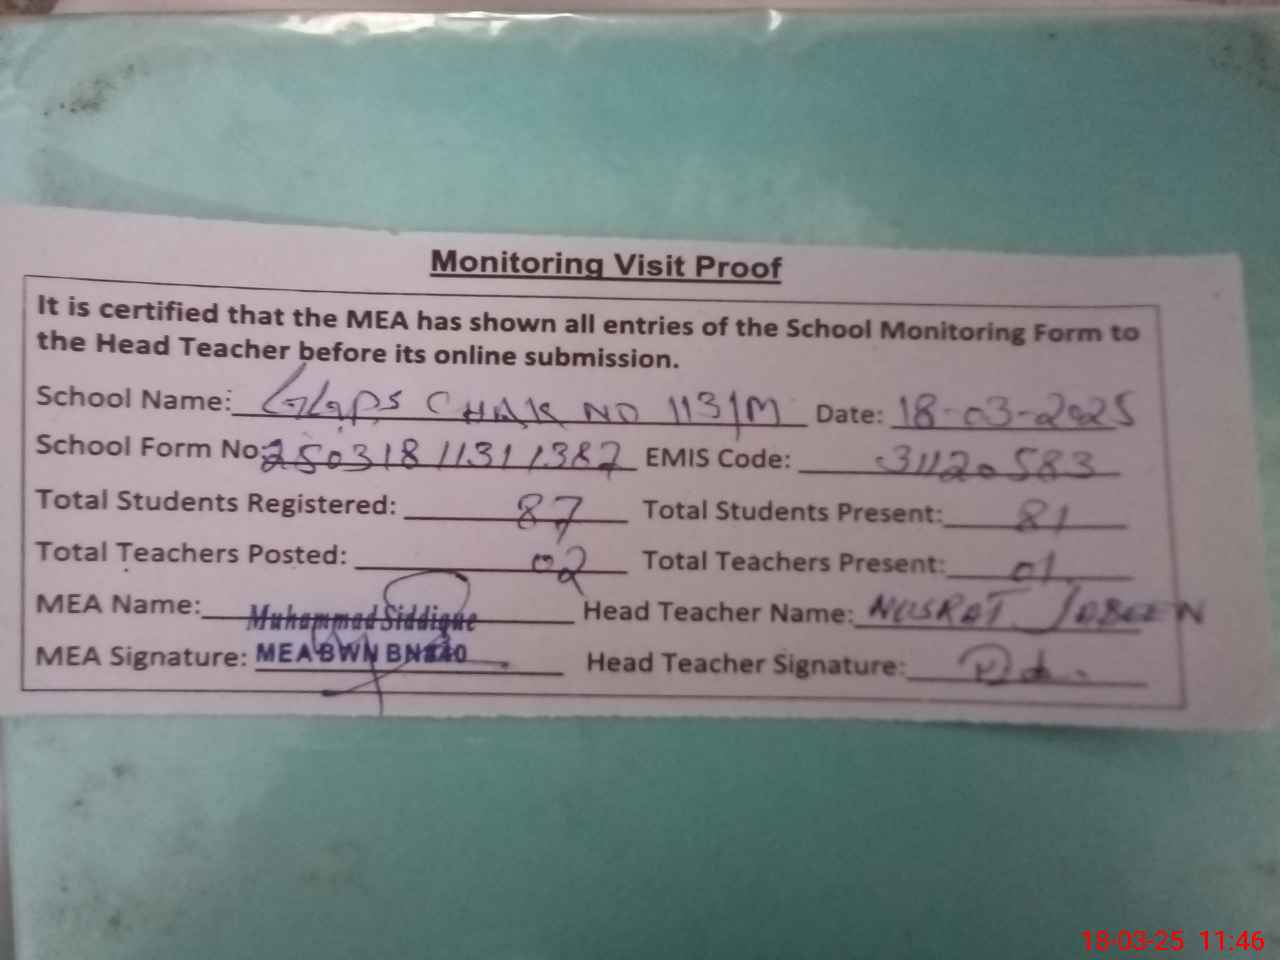 Monitoring Visit Proof
It is certified that the MEA has shown all entries of the School Monitoring Form to
the Head Teacher before its online submission.
School Name: GGPS CHAK NO 113/M Date: 18-03-2025
School Form No: EMIS Code: 31120583
Total Students Registered: 87 Total Students Present: 81
Total Teachers Posted: 02 Total Teachers Present: 01
MEA Name: Muhammad Siddique Head Teacher Name: NUSRAT JABEEN
MEA Signature: MEA BWN Head Teacher Signature:
18-03-25 11:46